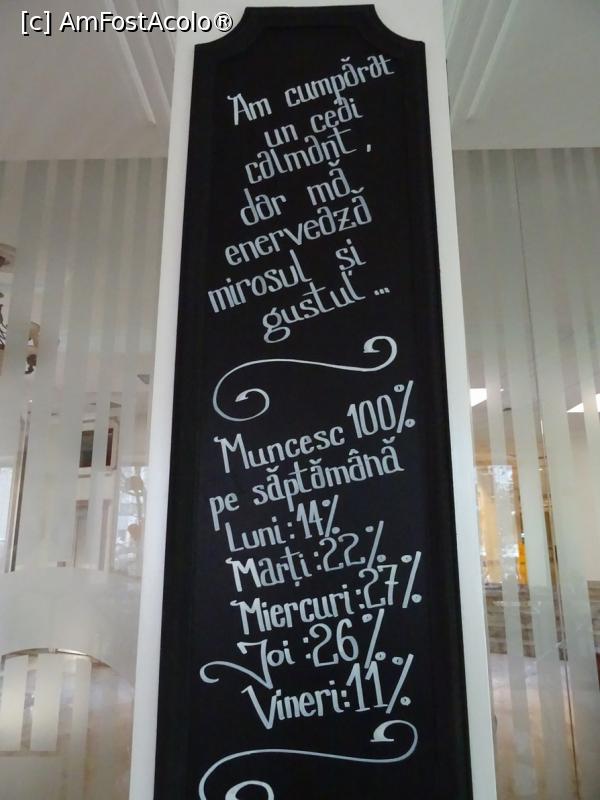 [c] AmFostAcolo®
Am cumpărat
un ceai
calmant,
dar mă
enervează
mirosul și
gustul...
Muncesc 100%
pe săptămână
Luni: 14%
Marți: 22%
Miercuri: 27%
Joi: 26%
Vineri: 11%